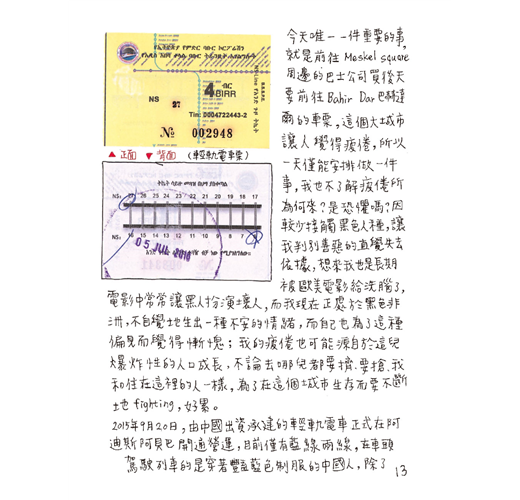 የኢትዮጵያ የምድር ባቡር ኮርፖሬሽን
NS
27
4 ብር
BIRR
Tin: 0004722443-2
No 002948
▲ 正面 ▼ 背面 (輕軌電車票)
NS: 27 26 25 24 23 22 21 20 19 18 17
05 JUL 2018
今天唯一一件重要的事,
就是前往 Meskel square
周邊的巴士公司買後天
要前往 Bahir Dar 巴赫達
爾的車票,這個大城市
讓人覺得疲倦,所以
一天僅能安排做一件
事,我也不了解疲倦所
為何來?是恐懼嗎?因
較少接觸黑色人種,讓
我判別善惡的直覺失去
依據,想來我也是長期
被歐美電影給洗腦了,
電影中常常讓黑人扮演壞人,而我現在正處於黑色非
洲,不自覺地生出一種不安的情緒,而自己也為了這種
偏見而覺得慚愧;我的疲倦也可能源自於這兒
爆炸性的人口成長,不論去哪兒都要擠、要搶、我
和住在這裡的人一樣,為了在這個城市生存而要不斷
地 fighting,好累。
2015年9月20日,由中國出資承建的輕軌電車正式在阿
迪斯阿貝巴開通營運,目前僅有藍綠兩線,在車頭
駕駛列車的是穿著豔藍色制服的中國人,除了
13